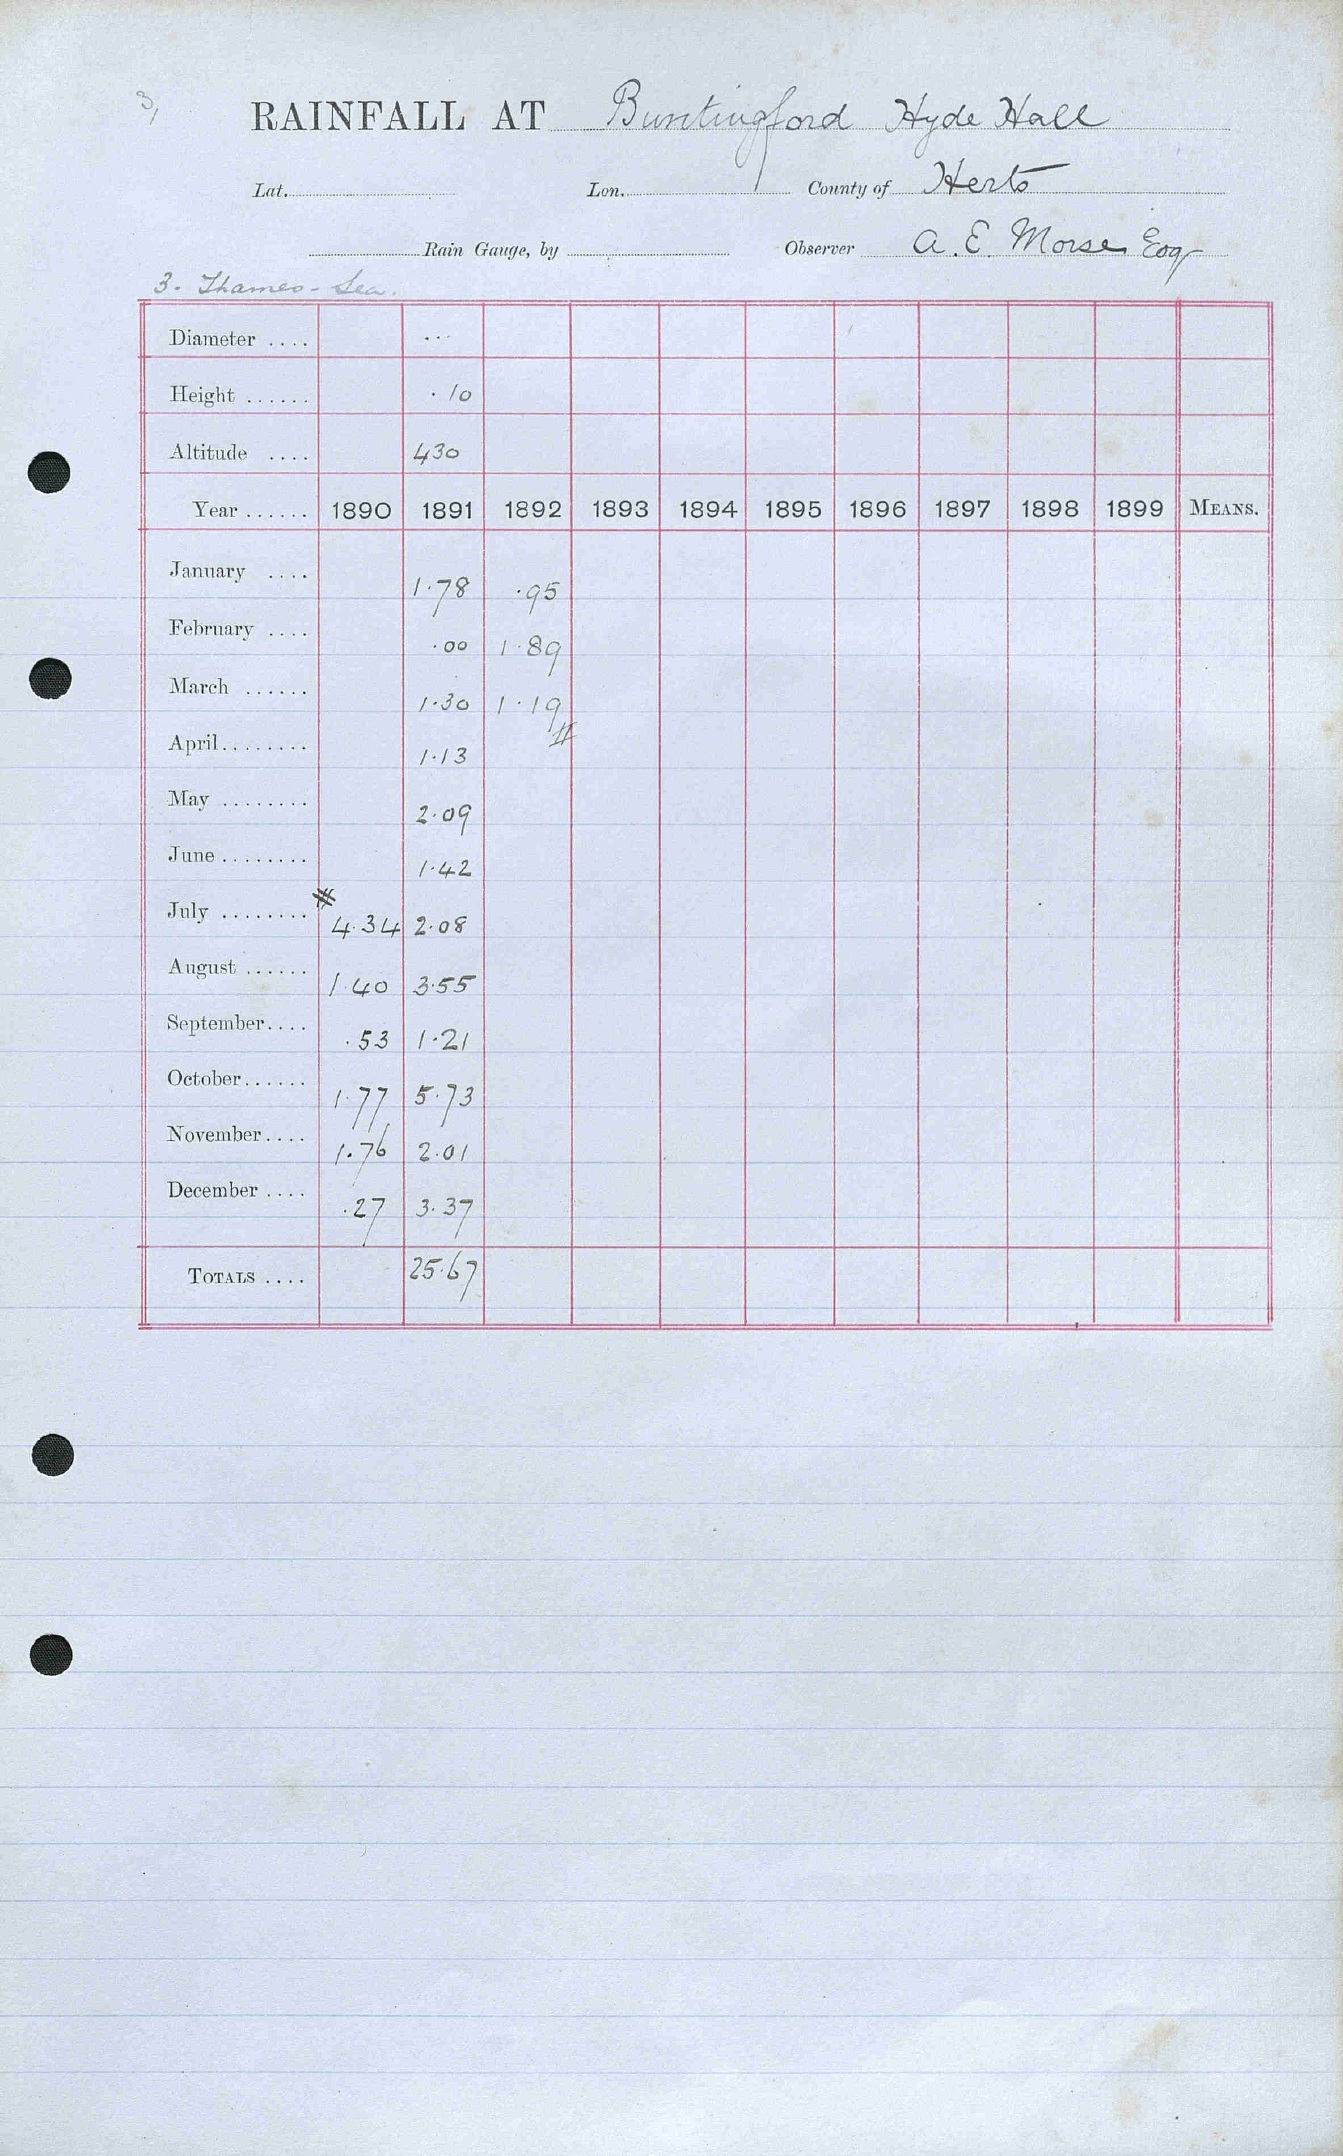 3,
RAINFALL AT Buntingford Hyde Hall
Lat. Lon. County of Herts
Rain Gauge, by Observer A. E. Morse Esq
3. Thames - Sea.
Diameter .... ...
Height ...... .10
Altitude .... 430
Year ...... 1890 1891 1892 1893 1894 1895 1896 1897 1898 1899 MEANS.
January .... 1.78 .95
February .... .00 1.89
March ...... 1.30 1.19
April ........ 1.13 #
May ........ 2.09
June ........ 1.42
July ........ # 4.34 2.08
August ...... 1.40 3.55
September .... .53 1.21
October ...... 1.77 5.73
November .... 1.76 2.01
December .... .27 3.37
TOTALS .... 25.67